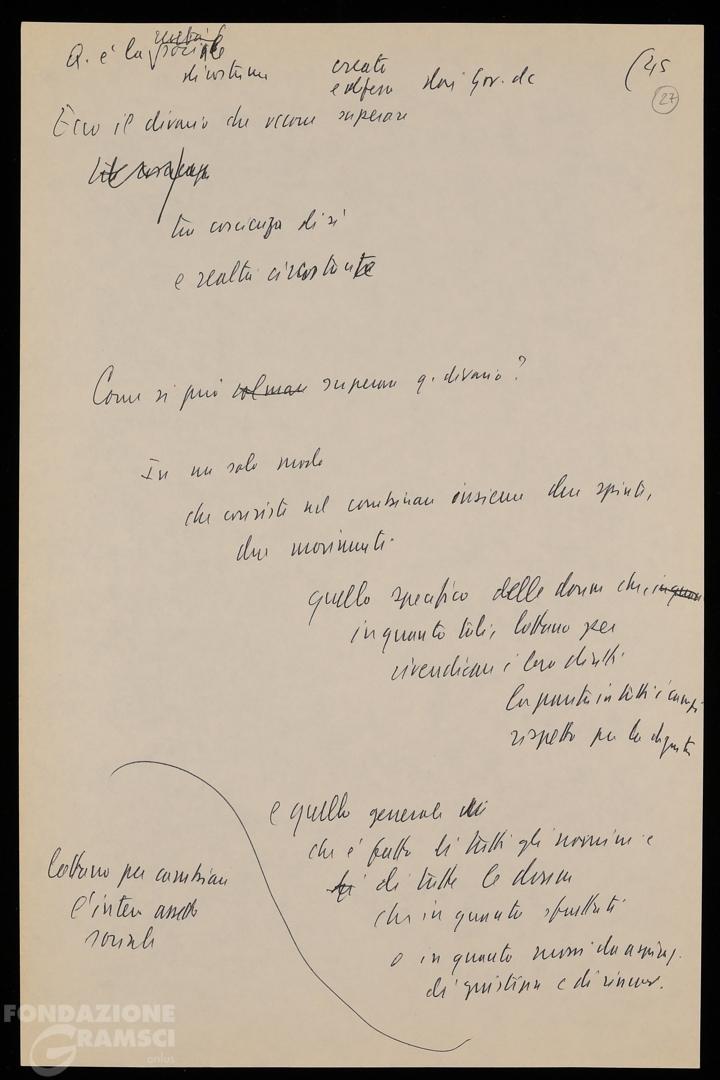 Q. è la sociale
di costume
creata
e difesa dai Gov. dc
(45
27
Ecco il divario che occorre superare
tra coscienza di sé
e realtà circostante
Come si può colmare superare q. divario?
In un solo modo
che consiste nel combinare insieme due spinte,
due movimenti
quello specifico delle donne che, in quan
in quanto tali, lottano per
rivendicare i loro diritti
la parità in tutti i campi
rispetto per la dignità
e quello generale di
che è fatto di tutti gli uomini e
di tutte le donne
che in quanto sfruttati
o in quanto mossi da aspiraz.
di giustizia e di rinnov.
lottano per cambiare
l'intero assetto
sociale
FONDAZIONE
GRAMSCI
onlus